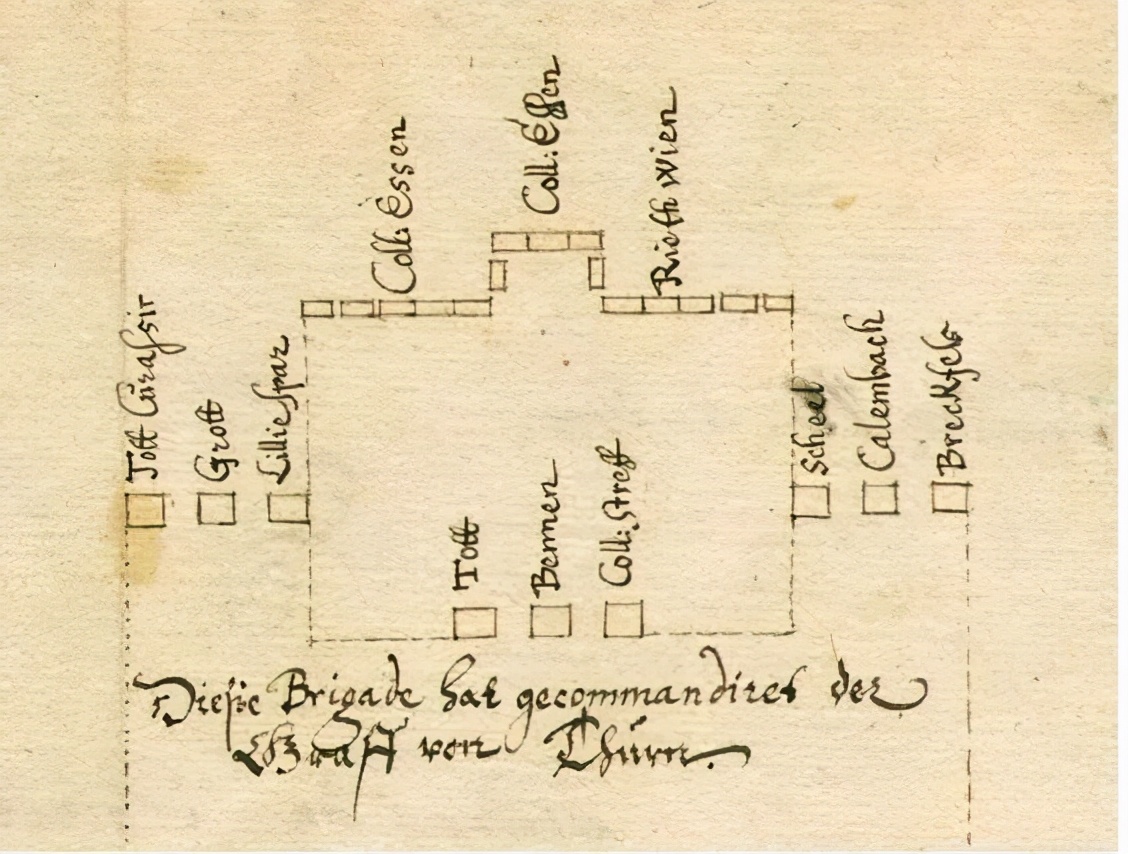 Coll: Essen
Coll: Essen
Rieth wien
Tott Cürassir
Grott
Lilliespar
Scheel
Calembach
Breckfels
Tott
Bennen
Coll: Streff
Diesse Brigade hat gecommandiret der
Graff von Thürn.